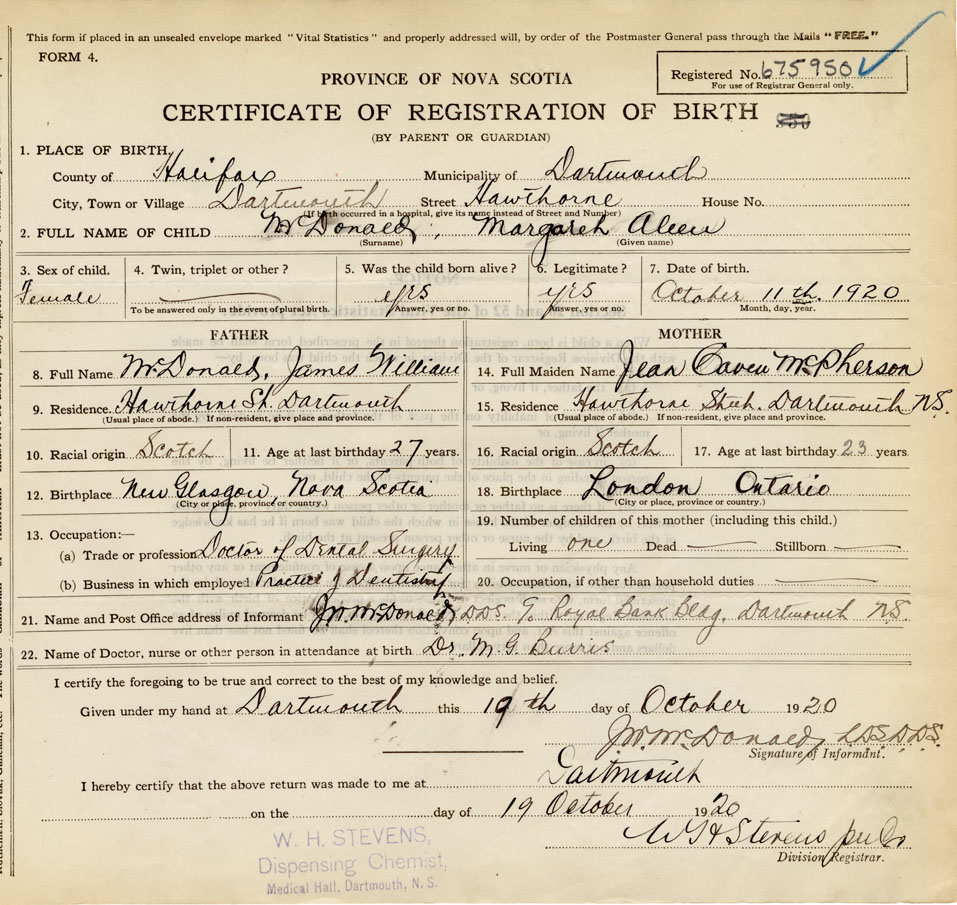 This form if placed in an unsealed envelope marked "Vital Statistics" and properly addressed will, by order of the Postmaster General pass through the Mails "FREE."
FORM 4.
Registered No. 675950
For use of Registrar General only.
PROVINCE OF NOVA SCOTIA
CERTIFICATE OF REGISTRATION OF BIRTH
(BY PARENT OR GUARDIAN)
1. PLACE OF BIRTH
County of Halifax Municipality of Dartmouth
City, Town or Village Dartmouth Street Hawthorne House No.
(If birth occurred in a hospital, give its name instead of Street and Number)
2. FULL NAME OF CHILD McDonald, Margaret Aleen
(Surname) (Given name)
3. Sex of child. 4. Twin, triplet or other? 5. Was the child born alive? 6. Legitimate? 7. Date of birth.
Female yes yes October 11th. 1920
To be answered only in the event of plural birth. Answer, yes or no. Answer, yes or no. Month, day, year.
FATHER MOTHER
8. Full Name McDonald, James William 14. Full Maiden Name Jean McPherson
9. Residence. Hawthorne St. Dartmouth 15. Residence Hawthorne Street. Dartmouth N.S.
(Usual place of abode.) If non-resident, give place and province. (Usual place of abode.) If non-resident, give place and province.
10. Racial origin Scotch 11. Age at last birthday 27 years. 16. Racial origin Scotch 17. Age at last birthday 23 years.
12. Birthplace New Glasgow, Nova Scotia 18. Birthplace London Ontario
(City or place, province or country.) (City or place, province or country.)
13. Occupation:— 19. Number of children of this mother (including this child.)
(a) Trade or profession Doctor of Dental Surgery Living one Dead Stillborn
(b) Business in which employed Practice of Dentistry 20. Occupation, if other than household duties
21. Name and Post Office address of Informant J.W. McDonald D.D.S. Royal Bank Bldg. Dartmouth N.S.
22. Name of Doctor, nurse or other person in attendance at birth Dr. M. G. Burris
I certify the foregoing to be true and correct to the best of my knowledge and belief.
Given under my hand at Dartmouth this 19th day of October 1920
J.W. McDonald, L.D.S. D.D.S.
Signature of Informant.
I hereby certify that the above return was made to me at Dartmouth
on the day of 19 October 1920
W H Stevens per
Division Registrar.
W. H. STEVENS,
Dispensing Chemist,
Medical Hall, Dartmouth, N. S.